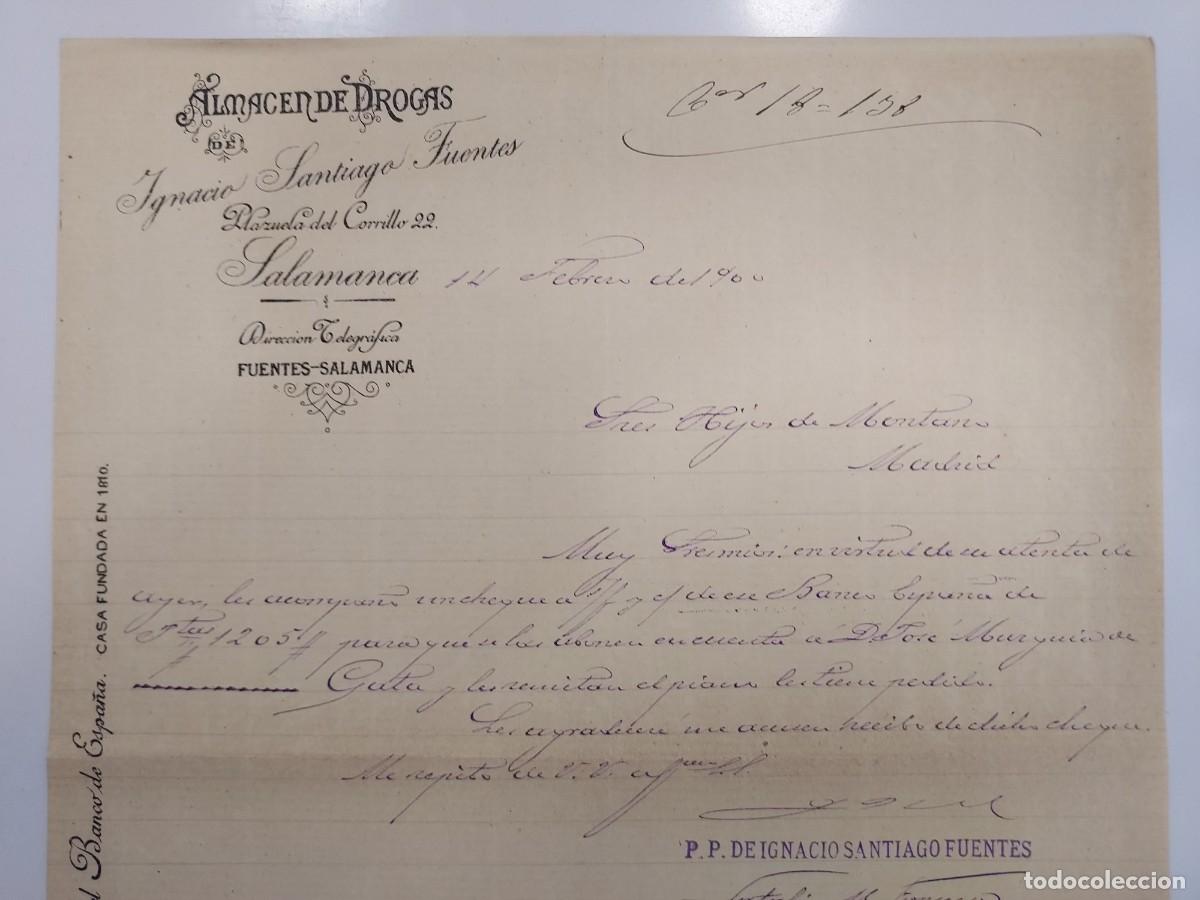 ALMACEN DE DROGAS
DE
Ignacio Santiago Fuentes
Plazuela del Corrillo 22.
Salamanca 14 Febrero de 1900
Direccion Telegráfica
FUENTES-SALAMANCA
18=138
Sres Hijos de Montano
Madrid
Muy Sres mios: en virtud de su atenta de
ayer, les acompaño un cheque a f/ y c/ de ese Banco España de
Ptas 1205 para que se los abonen en cuenta á D. José Murguia de
Gata y les remitan el piano les tiene pedido.
Les agradeceré me acusen recibo de dicho cheque.
Me repito de V.V.
P. P. DE IGNACIO SANTIAGO FUENTES
Banco de España. CASA FUNDADA EN 1810.
todocoleccion